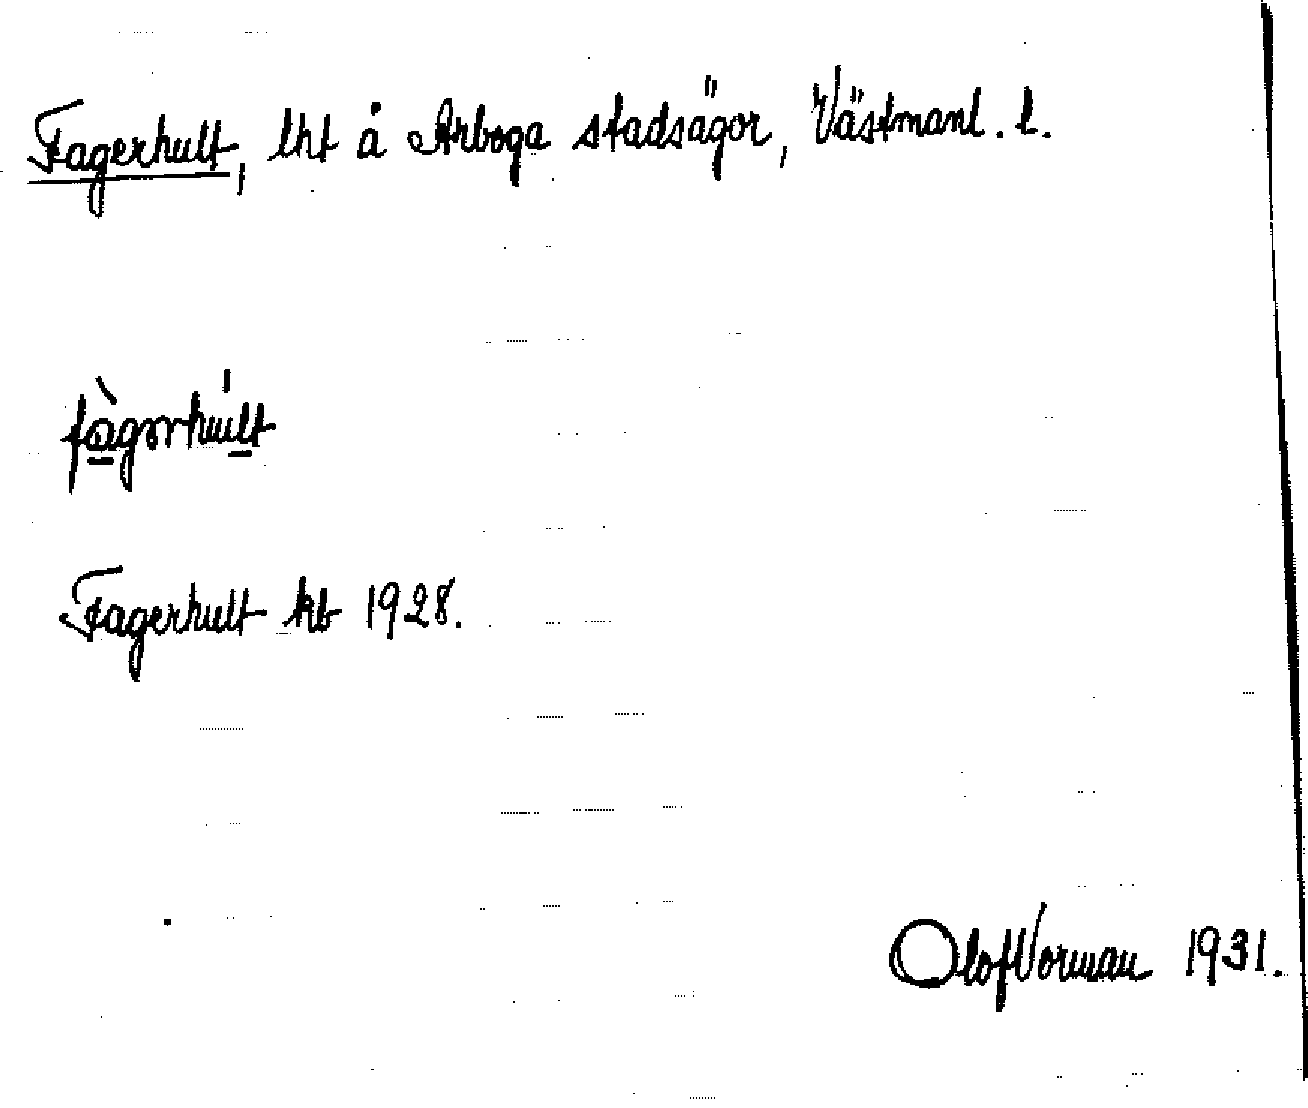 Fagerhult, lht å Arboga stadsägor, Västmanl. l.
fàgərhúlt
Fagerhult kb 1928.
Olof Vorman 1931.